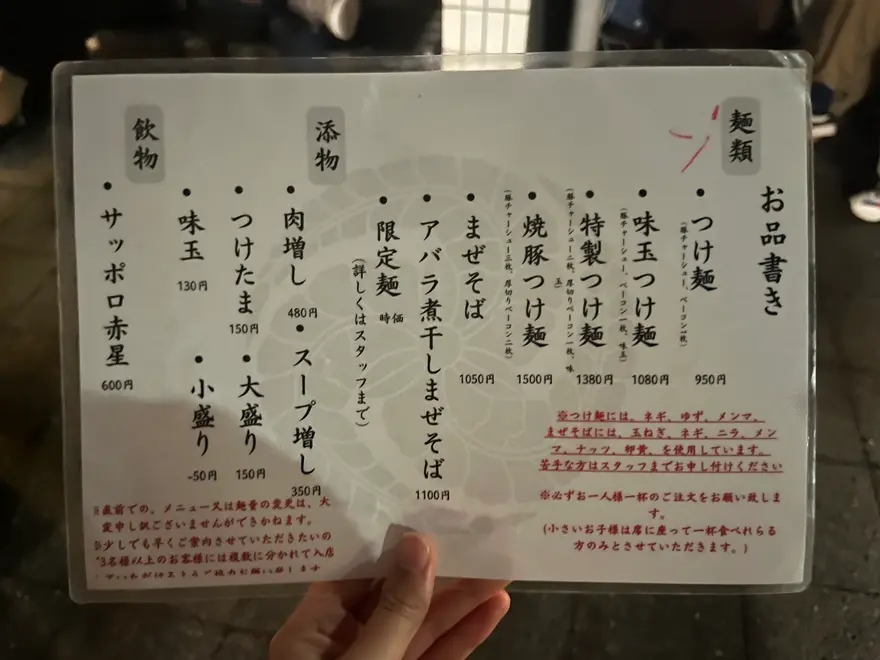 お品書き
麺類
つけ麺
(豚チャーシュー、ベーコン一枚)
950円
味玉つけ麺
(豚チャーシュー、ベーコン一枚、味玉)
1080円
特製つけ麺
(豚チャーシュー二枚、厚切りベーコン一枚、味玉)
1380円
焼豚つけ麺
(豚チャーシュー三枚、厚切りベーコン二枚)
1500円
まぜそば
1050円
アバラ煮干しまぜそば
1100円
限定麺 時価
(詳しくはスタッフまで)
※つけ麺には、ネギ、ゆず、メンマ、
まぜそばには、玉ねぎ、ネギ、ニラ、メン
マ、ナッツ、卵黄、を使用しています。
苦手な方はスタッフまでお申し付けください
※必ずお一人様一杯のご注文をお願い致しま
す。
(小さいお子様は席に座って一杯食べれらる
方のみとさせていただきます。)
添物
肉増し
480円
スープ増し
350円
つけたま
150円
大盛り
150円
味玉
130円
小盛り
-50円
飲物
サッポロ赤星
600円
※直前での、メニュー又は麺量の変更は、大
変申し訳ございませんができかねます。
※少しでも早くご案内させていただきたいの
で3名様以上のお客様には複数に分かれて入店
していただけるようご協力お願い致します